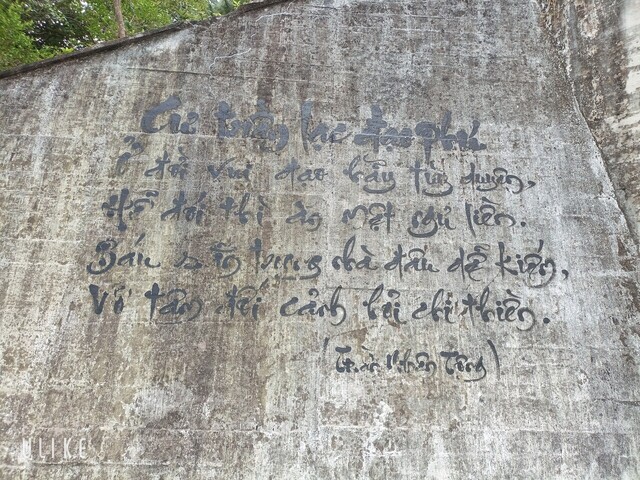 Cư trần lạc đạo phú
Ở đời vui đạo hãy tùy duyên,
Hễ đói thì ăn mệt ngủ liền.
Báu sẵn trong nhà đâu dễ kiếm,
Vô tâm đối cảnh hỏi chi thiền.
(Trần Nhân Tông)
ULIKE